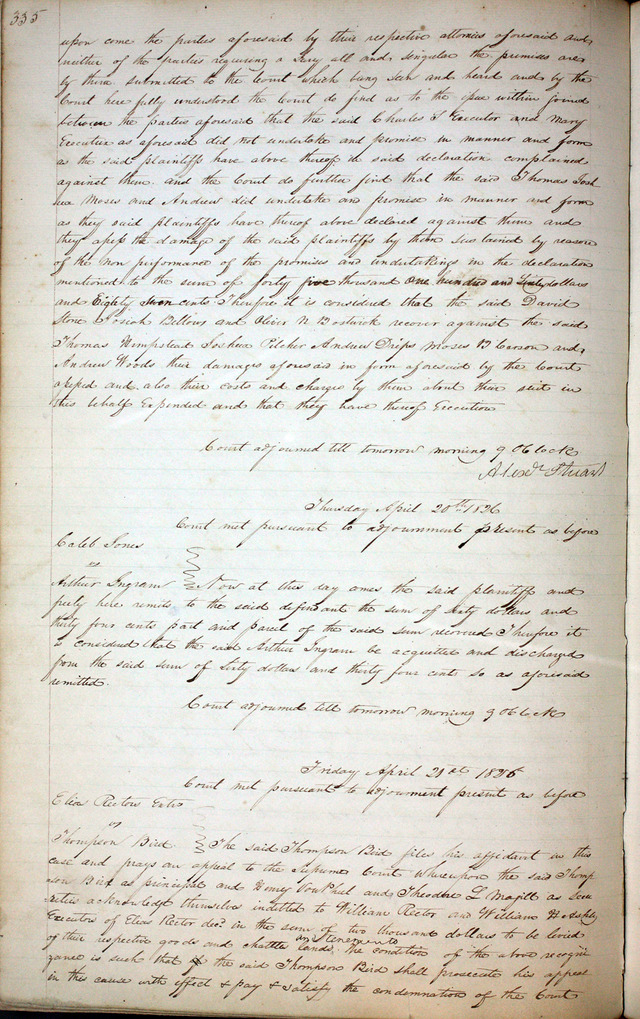 335
upon come the parties aforesaid by their respective attornies aforesaid and
neither of the parties requiring a Jury all and singular the premises are
by them submitted to the Court which being seen and heard and by the
Court here fully understood the Court do find as to the issue within joined
between the parties aforesaid that the said Charles S Executor and Mary
Executrix as aforesaid did not undertake and promise in manner and form
as the said plaintiffs have above thereof in said declaration complained
against them and the Court do further find that the said Thomas Josh
ua Moses and Andrew did undertake and promise in manner and form
as they said plaintiffs have thereof above declared against them and
they assess the damage of the said plaintiffs by them sustained by reason
of the non performance of the promises and undertakings in the declaration
mentioned to the sum of forty five thousand One hundred and Sixty dollars
and Eighty Seven cents Therefore it is considered that the said David
Stone Josiah Bellows and Oliver N Bostwick recover against the said
Thomas Hempstead Joshua Pilcher Andrew Drips Moses B Carson and
Andrew Woods their damages aforesaid in form aforesaid by the Court
assessed and also their costs and charges by them about their suit in
this behalf Expended and that they have thereof Execution
Court adjourned till tomorrow morning 9 OClock
Alexr Stuart
Thursday April 20th 1826
Court met pursuant to adjournment present as before
Caleb Jones
vs
Arthur Ingram Now at this day comes the said plaintiff and
freely here remits to the said defendant the sum of sixty dollars and
thirty four cents part and parcel of the said sum recovered Therefore it
is considered that the said Arthur Ingram be acquitted and discharged
from the said sum of Sixty dollars and thirty four cents so as aforesaid
remitted.
Court adjourned till tomorrow morning 9 OClock
Friday April 21st 1826
Court met pursuant to adjournment present as before
Elias Rectors Exrs
vs
Thompson Bird The said Thompson Bird files his affidavit in this
case and prays an appeal to the Supreme Court whereupon the said Thomp
son Bird as principal and Henry Von Phul and Theodore L Magill as Secu
rities acknowledge themselves indebted to William Rector and William H Ashley
Executors of Elias Rector decd in the sum of two thousand dollars to be levied
of their respective goods and chattles lands and tenements the condition of the above recogni
zance is such that if the said Thompson Bird shall prosecute his appeal
in this cause with effect & pay & satisfy the condemnation of the Court